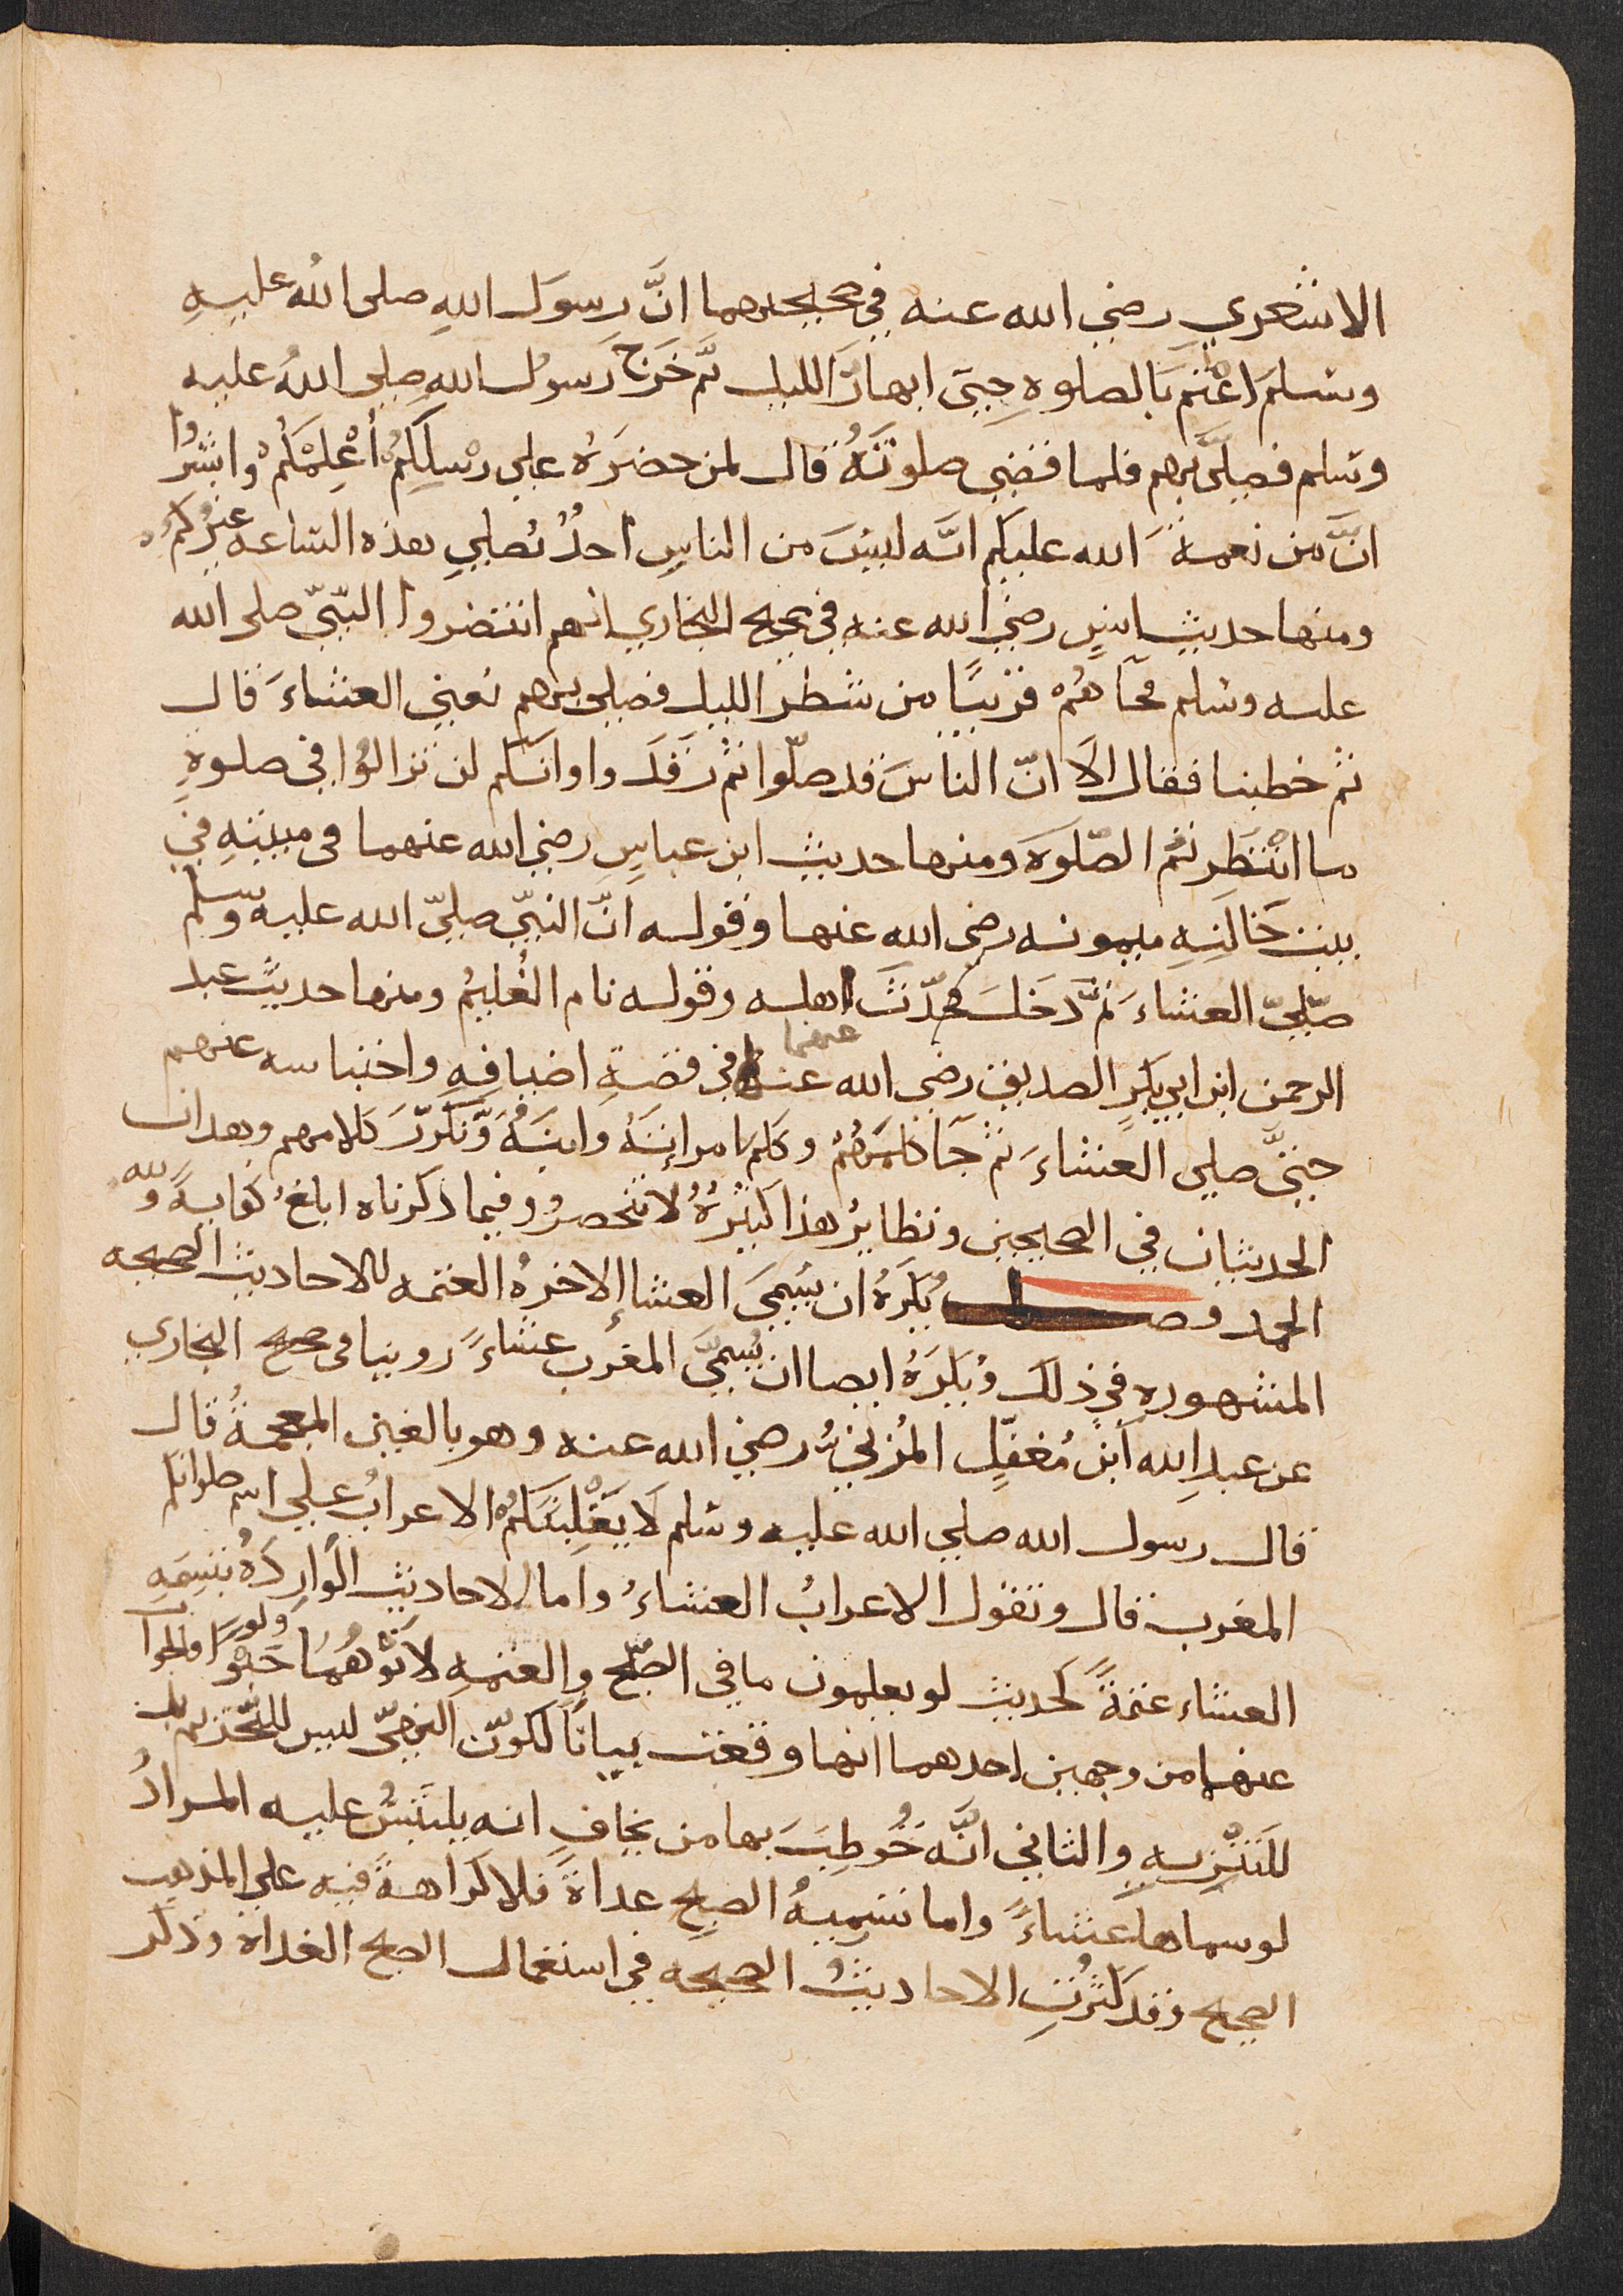 الاشعري رضي الله عنه في صحيحيهما انَّ رسول اللهِ صلى اللهُ عليهِ
وسلم اعْتم بالصلوةِ حتى ابهارَّ الليل ثمَّ خَرَج رَسولُ اللهِ صلى اللهُ عليه
وسلم فصلىَّ بهم فلما قضى صلوتَهُ قال لمن حضرَهُ على رِسْلِكمُ أُعْلِمْكمُ وابشرُوا
انَّ من نعمةَ الله عليكم انَّه ليسَ من الناسِ احدٌ يُصلي هذه الساعه غيرُكم
ومنها حديث انسٍ رضي الله عنه في صحيح البخاري انهم انتضروا النّبيّ صلى الله
عليه وسلم فجآهُمْ قريبًا من شطر الليل فصلى بهم يعني العشاءَ قال
ثم خطبنا فقال الَا انّ الناسَ قد صلّوا ثم رَقَدَوا وانكم لن تزالوُا في صلوةٍ
ما انْتَظَرتمُ الصّلوَة ومنها حديث ابن عباسٍ رضي الله عنهما في مبيتهِ في
بيت خَالَتِهِ ميمونه رضي الله عنها وقوله انّ النبيّ صلىّ الله عليه وسلم
صّلىّ العشاءَ ثمَّ دَخلَ فحدّثَ اهله وقوله نام الغُليمُ ومنها حديثَ عبد
الرحمن ابن ابي بكرٍ الصديق رضي الله عنهما في قصةِ اضيافِهِ واحتباسه عنهم
حتىَّ صلى العشاءَ ثم جَآ وكلمَهُمْ وكلم امرأتَهُ وابنَهُ وَّتكرّرَ كلامهم وهدان
الحديثان في الصحيحين ونظايرُ هذا كثيرُةُ لا تنحصرُ وفيما ذكرناه ابلغُ كفايةً ولله
الحمد فصل يُكرَهُ ان يسمىَ العشاإ الاخرهُ العتمه للاحاديث الصحيحه
المشهوره في ذلك وُيكرَهُ ايضا ان يُسمىَّ المغرب عشاءً روينا في صحيح البخاري
عن عبدِ الله ابن مُغفّلٍ المُزنيُّ رضي الله عنه وهو بالغين المعجمةُ قال
قال رسول الله صلي الله عليه وسلم لَا يَغْلِبَنَّكمُ الاعرابُ على اسم صلواتكم
المغرب قال وتقول الاعرابُ العشاءُ واما الاحاديث الوَارِدَةُ بتسِمَيهِ
العشاء عتمةً كحديث لو يعلمون ما في الصّبح والعتمهِ لاتَوْهُمُا ولو حَبْوًا فالجوآب
عنها من وجهين احدهما انها وقعت بيانًا لكونّ النهيّ ليس للتّحريم بل
للتنْزيه والثاني انَّه خُوطِبَ بها من يخاف انه يلتَبسُ عليه المرادُ
لو سماها عشاءً واما تسِميهُ الصبحِ غداةً فلا كراهةَ فيه على المذهب
الصحيح وقد كثُرتِ الاحاديثُ الصحيحه في استعمال الصبح الغداة وذكر